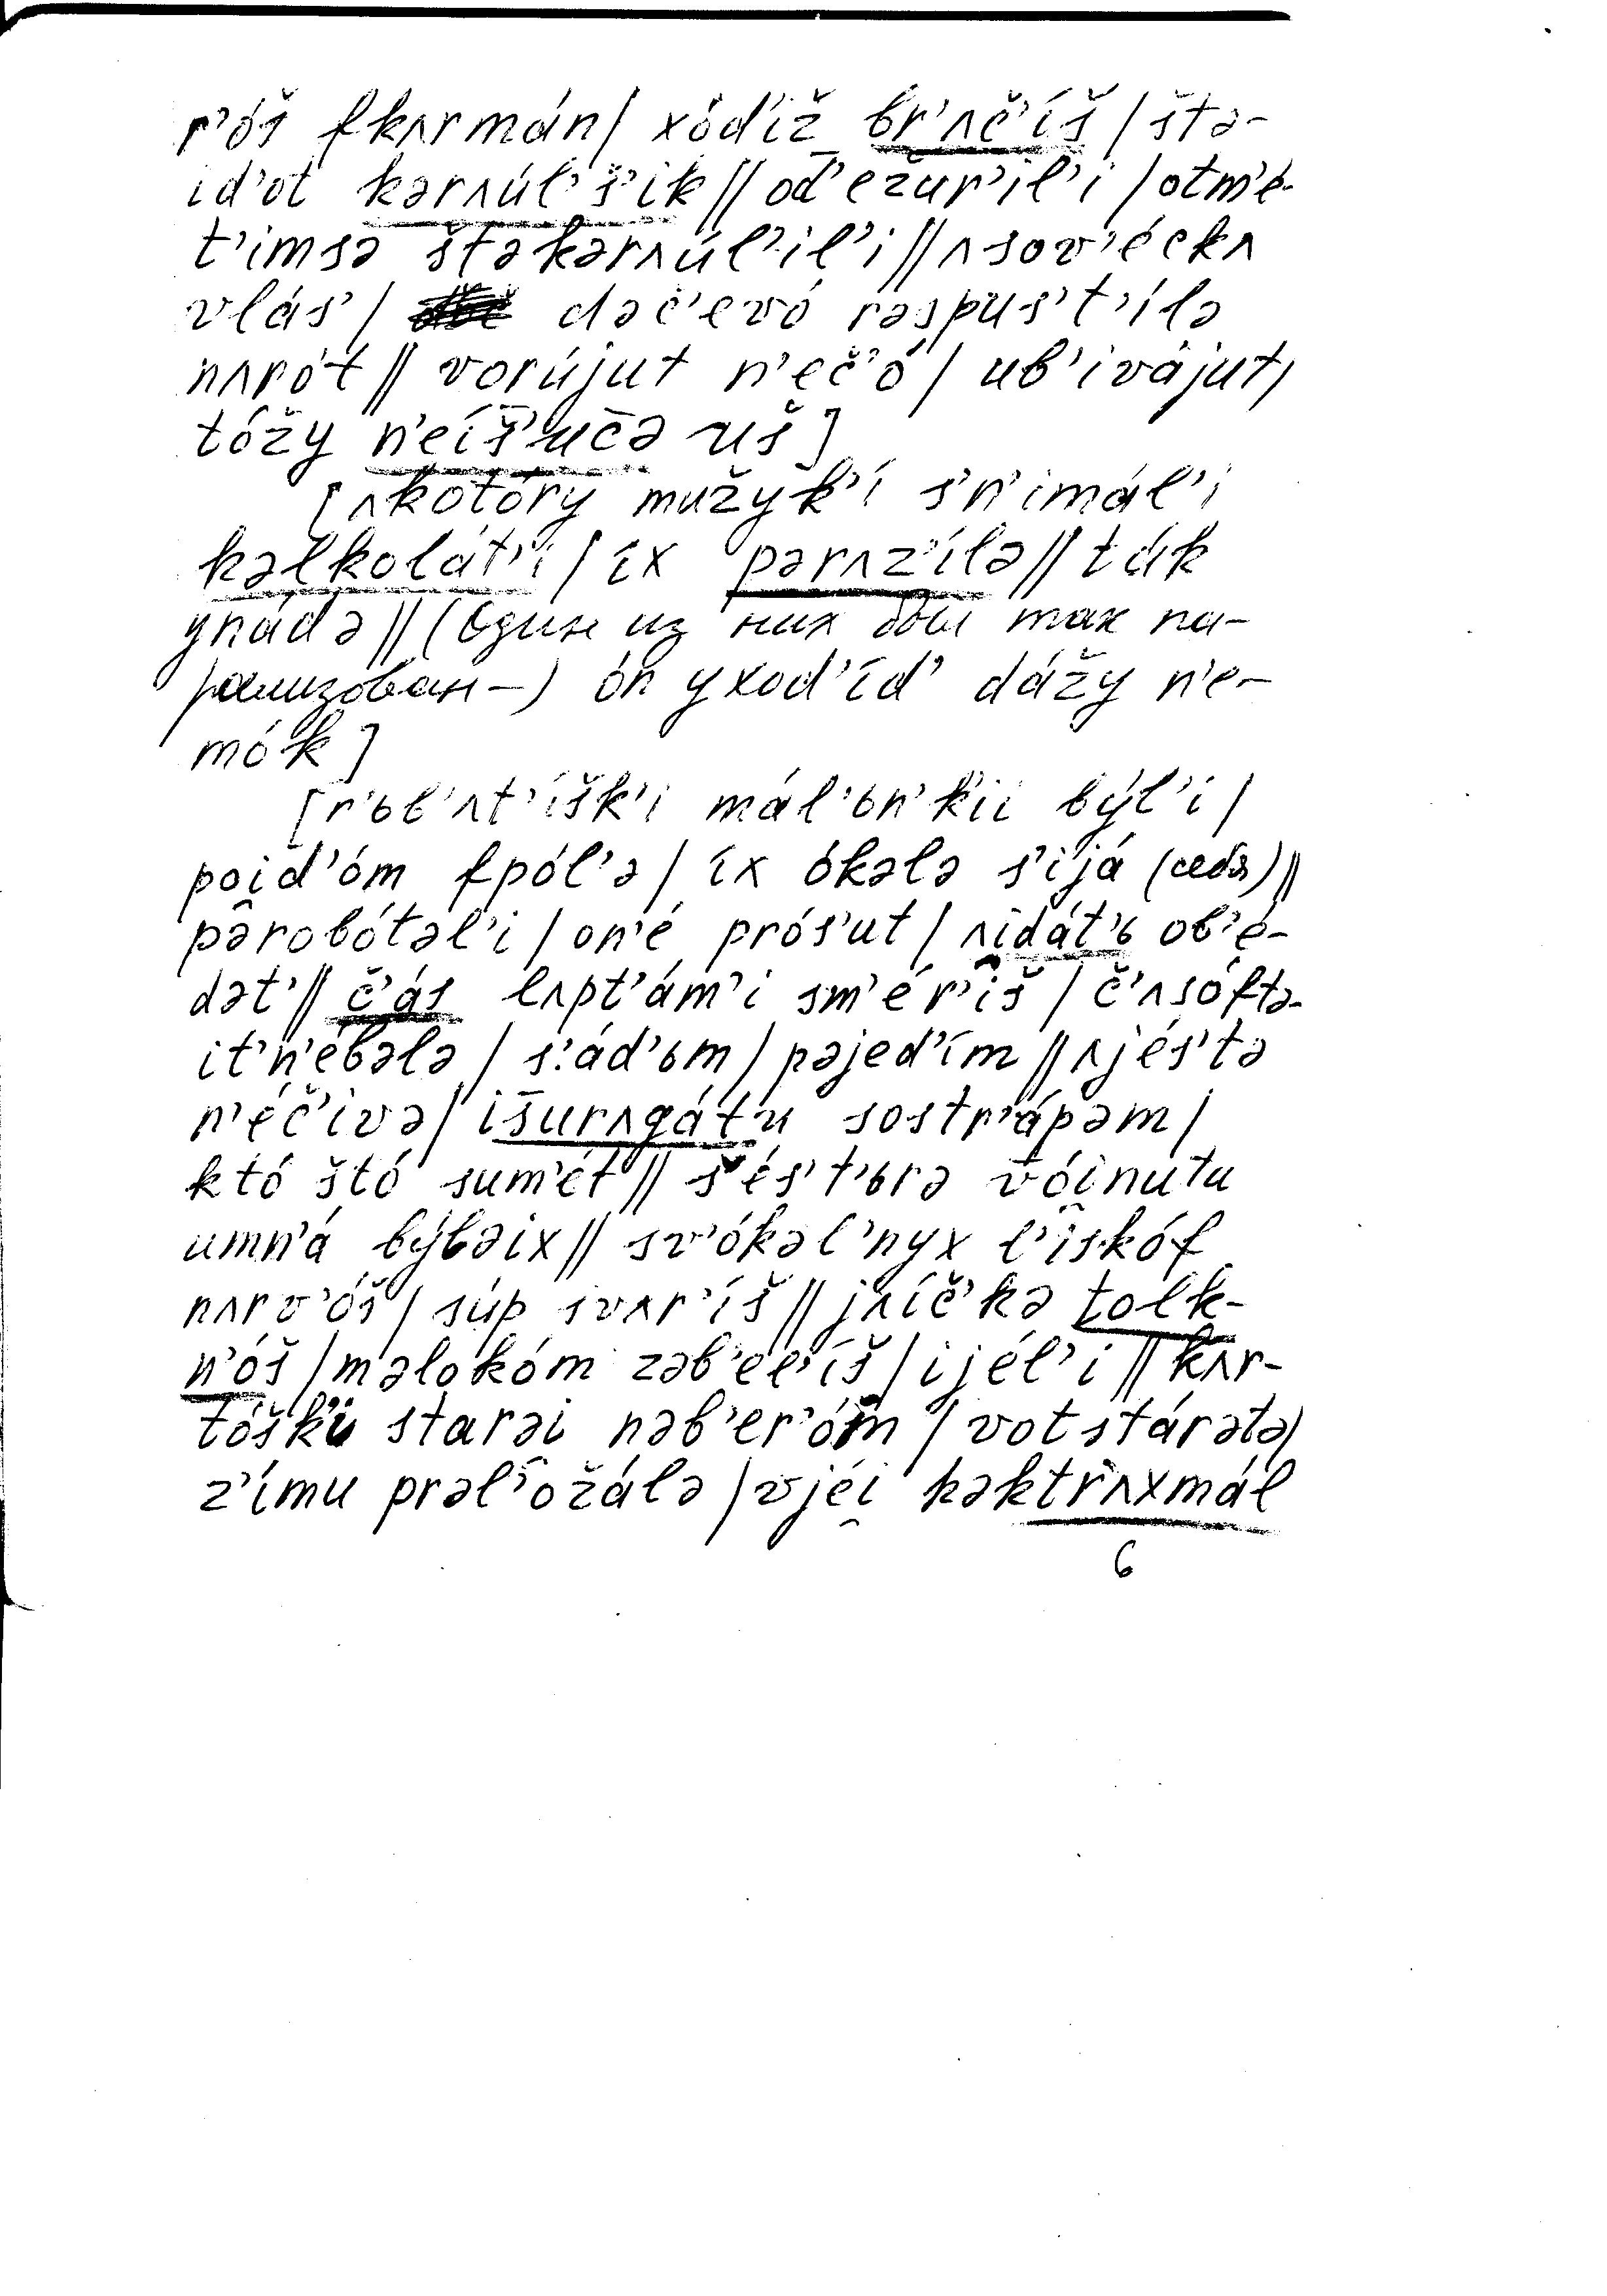 r’óš fkʌrmán / xód’iž br’ʌč’íš / štə-
id’ot kərʌúl’š’ik // od’ežur’il’i / otm’é-
t’imsə štəkərʌúl’il’i // ʌsov’éckʌ
vlás’ / dəč’evó rəspus’t’ílə
nʌrót // vorújut n’eč’ó / ub’ivájut /
tóžy n’eíš’učə uš]
[ʌkotóry mužyk’í s’n’imál’i
kəlkolát’i / íx pərʌz’ílə // ták
ynádə // (Один из них был так па-
рализован–) ón yxod’íd’ dážy n’e-
mók]
[r’ъb’ʌt’íšk’i mál’ъn’k’ii býl’i /
poid’óm fpól’ə / íx ókələ s’ijá (себя) //
pərobótəl’i / on’é prós’ut / ʌidát’ь ob’é-
dət’ // č’ás lʌpt’ám’i sm’ér’iš / č’ʌsóftə-
it’n’ébələ / s’ád’ъm / pəjed’ím // ʌjés’tə
n’éč’ivə / išurʌgátu sostr’ápəm /
któ štó sum’ét // š’és’t’ьrə vóinutu
umn’á býbəix // sv’ókəl’nyx l’iskóf
nʌrv’óš / súp svʌr’íš // jʌíč’kə tolk-
n’óš / məlokóm zəb’el’íš / i jél’i // kʌr-
tóšku starəi nəb’er’óm / vot stárətə /
z’ímu prəl’ožálə / vjéi kəktrʌxmál
6